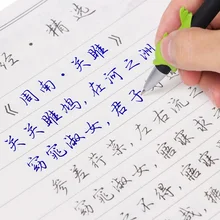 经·精选
《周南·关雎》
关关雎鸠，在河之洲
窈窕淑女，君子
参差荇菜，左右流
窈窕淑女，寤寐求
求之不得，寤寐